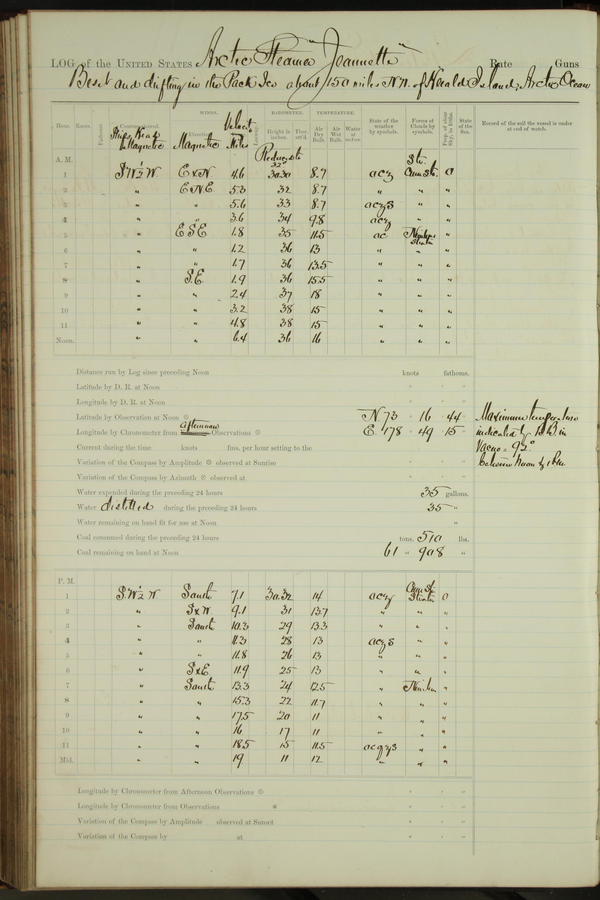 LOG of the UNITED STATES Arctic Steamer "Jeannette" Rate Guns
Beset and drifting in the Pack Ice about 150 miles N.W. of Herald Island, Arctic Ocean
Hour. Knots. Ship's Head Magnetic WINDS. Magnetic Velocity Miles BAROMETER. Height in inches. Reduced to 32° Ther. att'd. TEMPERATURE. Air Dry Bulb. Air Wet Bulb. Water at Surface State of the weather by symbols. Forms of Clouds by symbols. Prop. of clear Sky, in 10ths. State of the Sea. Record of the sail the vessel is under at end of watch.
A.M.
1 S W ½ W E x N 4.6 30.30 8.7 Str. Cum. St. 0
2 " E N E 5.3 32 8.7 " " "
3 " " 5.6 33 8.7 " "
4 " " 3.6 34 9.8 " "
5 " E S E 1.8 35 11.5 ac "
6 " " 1.2 36 13 " " "
7 " " 1.7 36 13.5 " " "
8 " S.E. 1.9 36 15.5 " " "
9 " " 2.4 37 18 " " "
10 " " 3.2 38 15 " " "
11 " " 4.8 38 15 " " "
Noon. " " 6.4 36 16 " " "
Distance run by Log since preceding Noon knots fathoms.
Latitude by D. R. at Noon " "
Longitude by D. R. at Noon " "
Latitude by Observation at Noon N 73 16 44
Longitude by Chronometer from afternoon Observations E. 178 49 15
Maximum temperature
indicated by B.B. in
Vacuo = 92°
between Noon & 1 P.M.
Current during the time knots fms. per hour setting to the
Variation of the Compass by Amplitude observed at Sunrise
Variation of the Compass by Azimuth observed at
Water expended during the preceding 24 hours 35 gallons.
Water distilled during the preceding 24 hours 35 "
Water remaining on hand fit for use at Noon "
Coal consumed during the preceding 24 hours tons. 510 lbs.
Coal remaining on hand at Noon 61 " 908 "
P. M.
1 S W ½ W South 7.1 30.32 14 Cum. St. 0
2 " S x W 9.1 31 13.7 " " "
3 " South 10.3 29 13.3 " " "
4 " " 11.3 28 13 " "
5 " " 11.8 26 13 " " "
6 " S x E 11.9 25 13 " " "
7 " South 13.3 24 12.5 " "
8 " " 15.3 22 11.7 " " "
9 " " 17.5 20 11 " " "
10 " " 16 17 11 " " "
11 " " 18.5 15 11.5 " "
Mid. " " 19 11 12 " " "
Longitude by Chronometer from Afternoon Observations
Longitude by Chronometer from Observations
Variation of the Compass by Amplitude observed at Sunset
Variation of the Compass by at